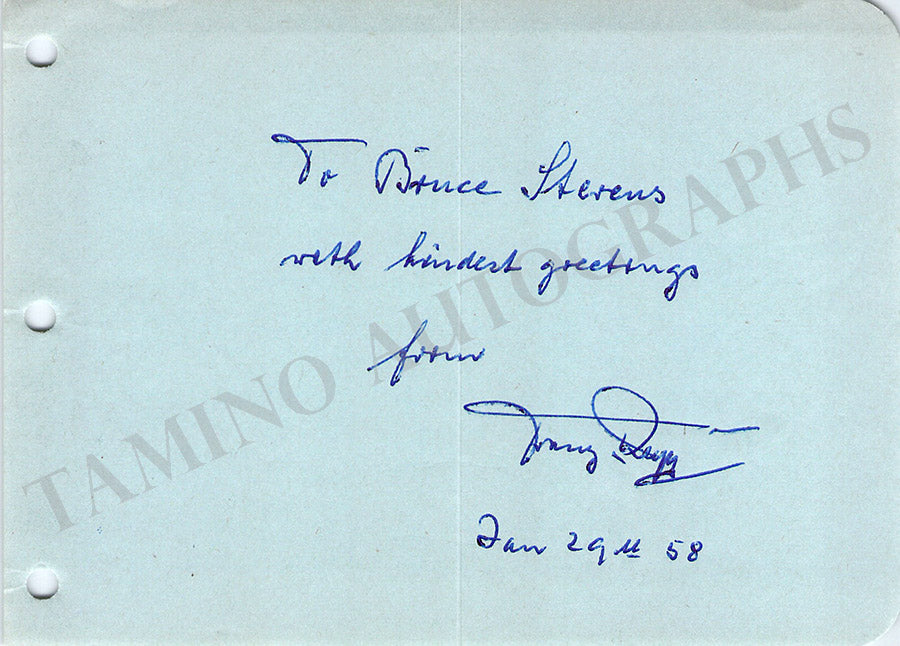 To Bruce Stevens
with kindest greetings
from
Franz
Jan 29th 58
TAMINO AUTOGRAPHS